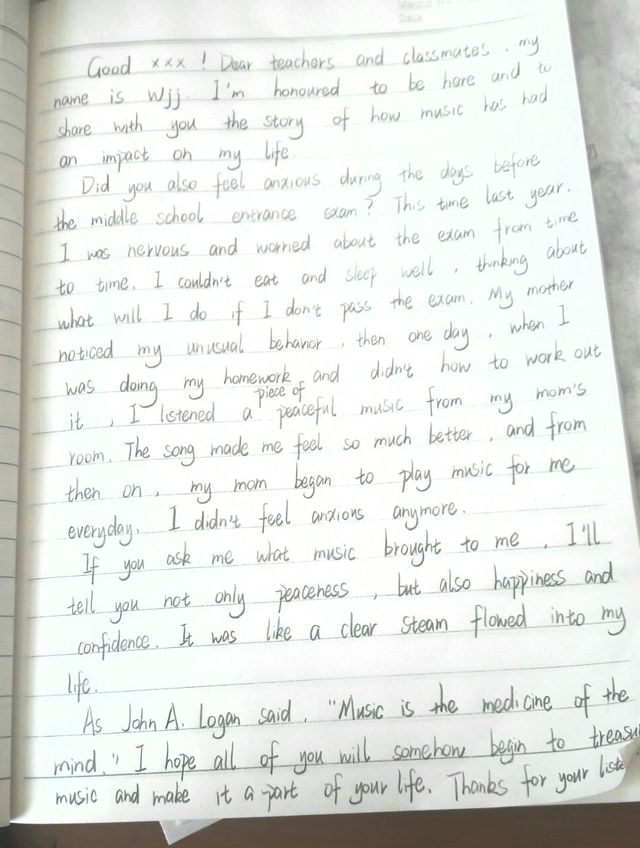 Good xxx ! Dear teachers and classmates. my
name is Wjj I'm honoured to be here and to
share with you the story of how music has had
an impact on my life
Did you also feel anxious during the days before
the middle school entrance exam? This time last year.
I was nervous and worried about the exam from time
to time. I couldn't eat and sleep well, thinking about
what will I do if I don't pass the exam. My mother
noticed my unusual behavior, then one day, when I
was doing my homework and didn't how to work out
it, I listened a piece of peaceful music from my mom's
room. The song made me feel so much better, and from
then on, my mom began to play music for me
everyday. I didn't feel anxions anymore.
If you ask me what music brought to me, I'll
tell you not only peaceness, but also happiness and
confidence. It was like a clear steam flowed into my
life.
As John A. Logan said, "Music is the medicine of the
mind." I hope all of you will somehow begin to treasu
music and make it a part of your life. Thanks for your liste